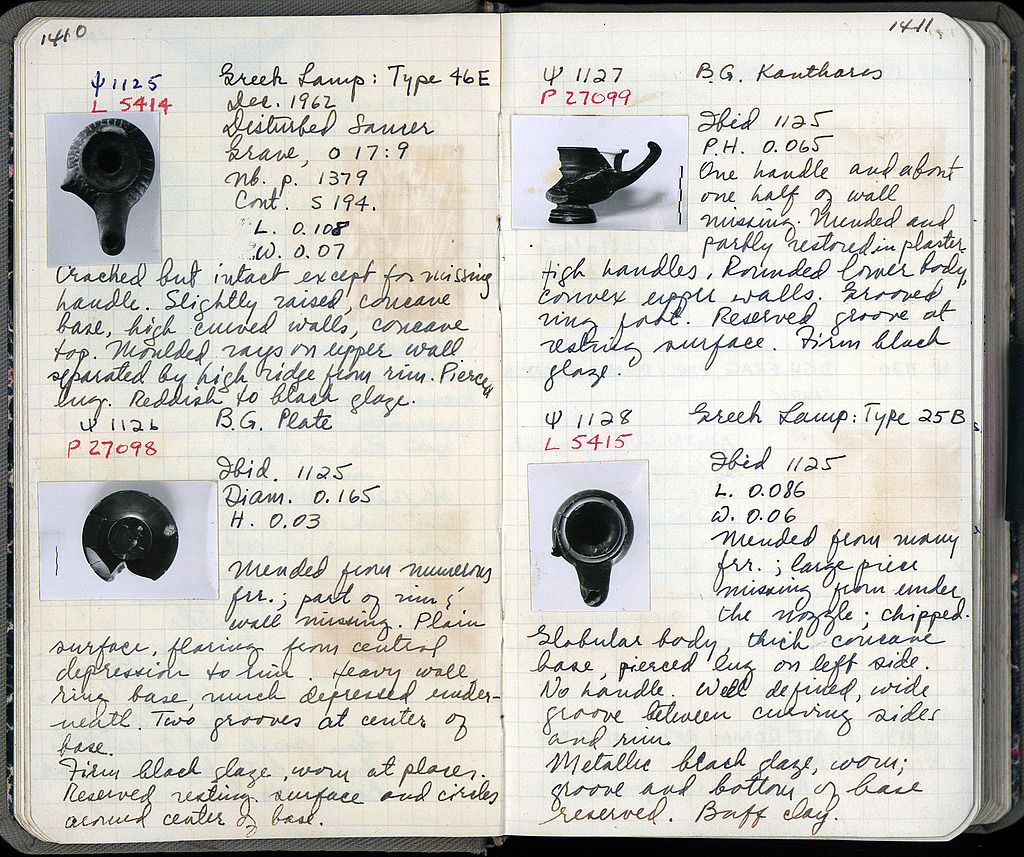 1410
Ψ 1125
L 5414
Greek Lamp: Type 46E
Dec. 1962
Disturbed Saucer
Grave, O 17:9
Nb. p. 1379
Cont. S 194.
L. 0.108
W. 0.07
Cracked but intact except for missing
handle. Slightly raised, concave
base, high curved walls, concave
top. Moulded rays on upper wall
separated by high ridge from rim. Pierced
lug. Reddish to black glaze.
Ψ 1126
P 27098
B.G. Plate
Ibid. 1125
Diam. 0.165
H. 0.03
Mended from numerous
frr.; part of rim &
wall missing. Plain
surface, flaring from central
depression to rim. Heavy wall,
ring base, much depressed under-
neath. Two grooves at center of
base.
Firm black glaze, worn at places.
Reserved resting surface and circles
around center of base.
1411
Ψ 1127
P 27099
B.G. Kantharos
Ibid 1125
P.H. 0.065
One handle and about
one half of wall
missing. Mended and
partly restored in plaster
High handles, Rounded lower body,
convex upper walls. Grooved
ring foot. Reserved groove at
resting surface. Firm black
glaze.
Ψ 1128
L 5415
Greek Lamp: Type 25B
Ibid 1125
L. 0.086
W. 0.06
Mended from many
frr.; large piece
missing from under
the nozzle; chipped.
Globular body, thick concave
base, pierced lug on left side.
No handle. Well defined, wide
groove between curving sides
and rim.
Metallic black glaze, worn;
groove and bottom of base
reserved. Buff clay.